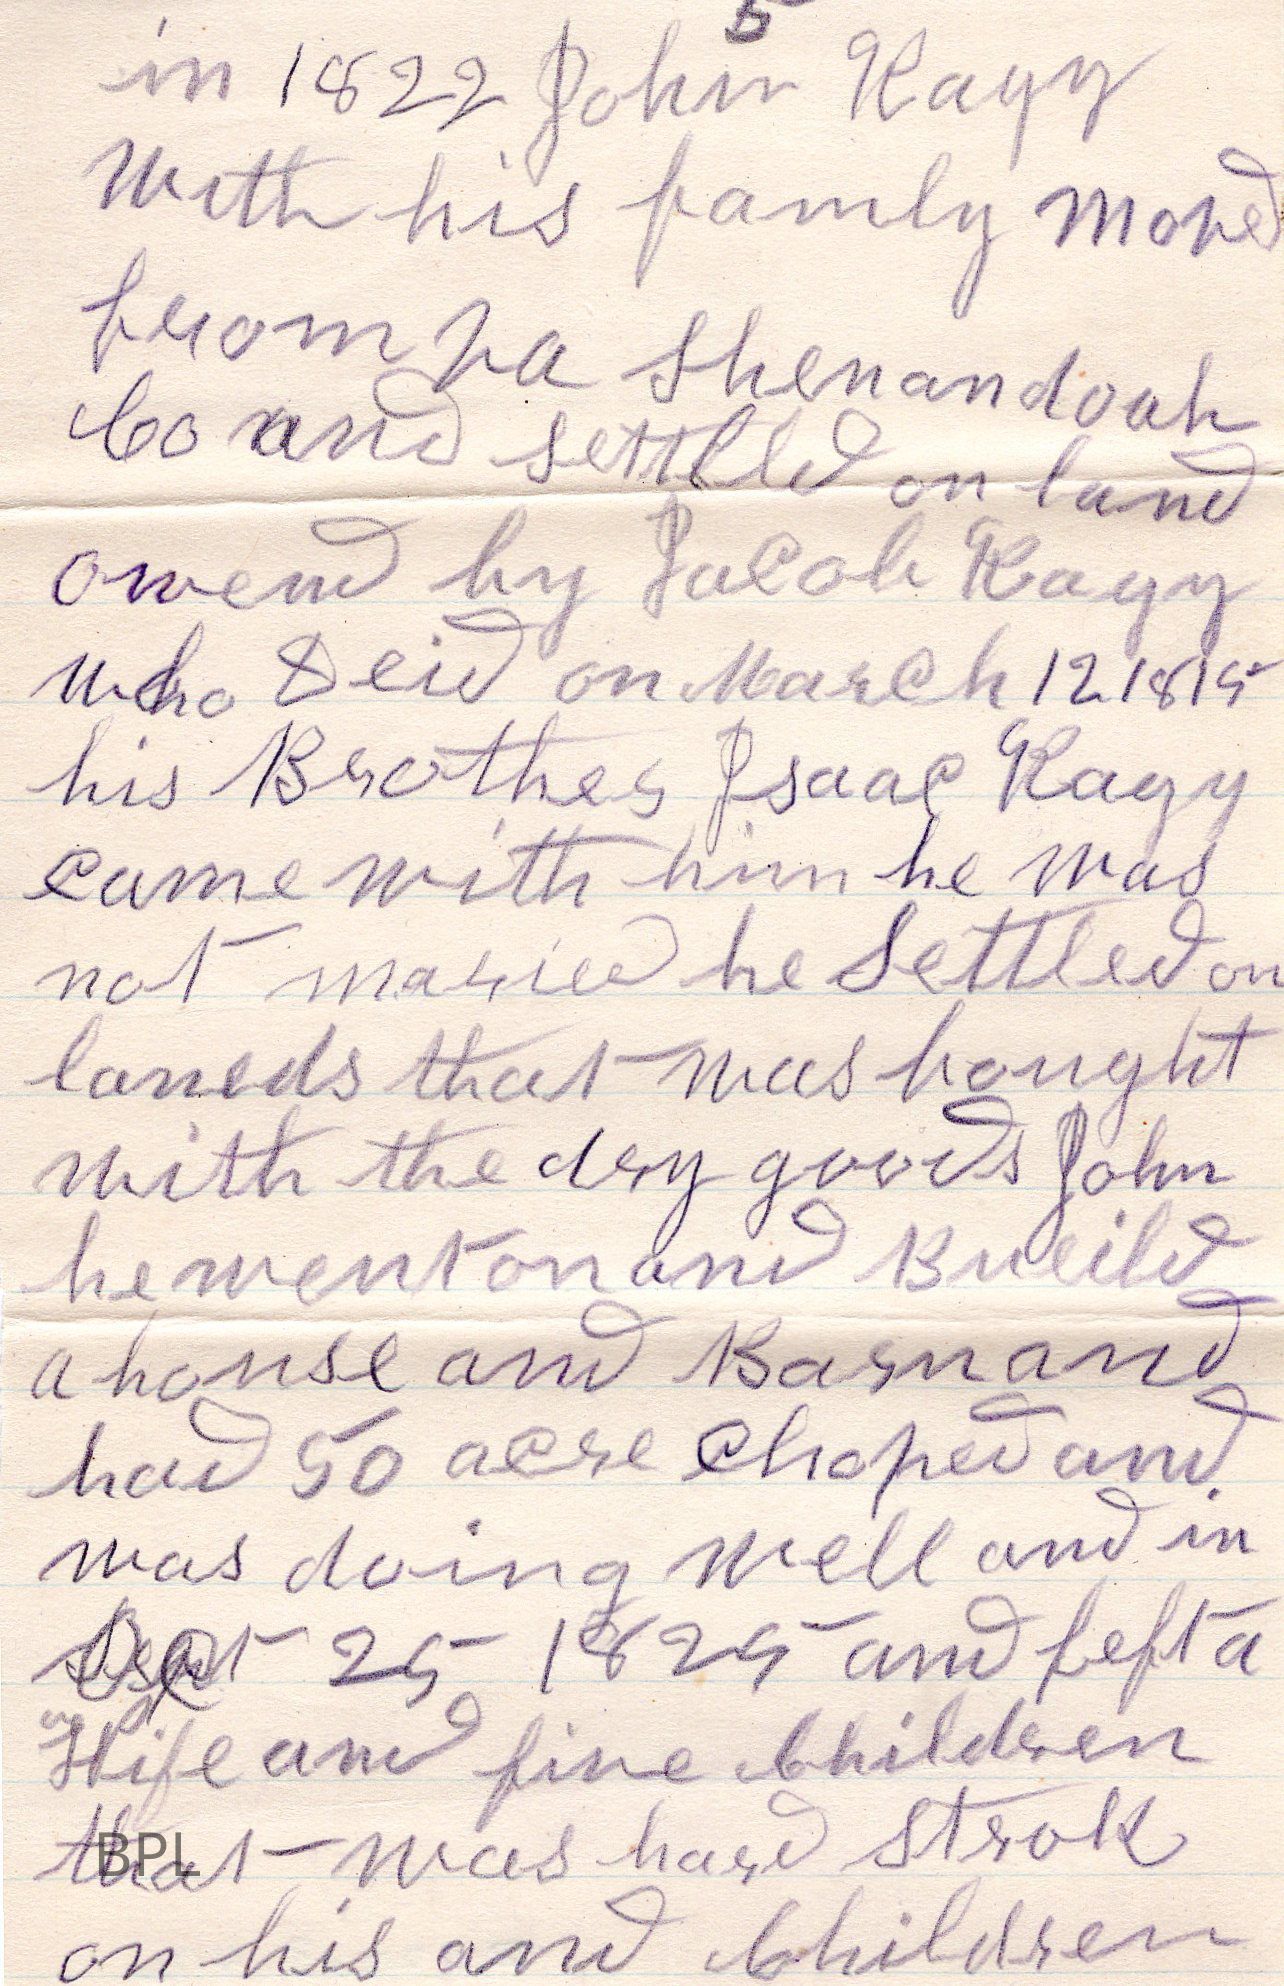 5
in 1822 John Kagy
with his famly moved
from Va Shenandoah
Co and settled on land
owend by Jacob Kagy
who Deid on March 12 1815
his Brother Isaac Kagy
came with him he was
not maried he settled on
laneds that was bought
with the dry goods John
he went on and Bueild
a house and Barn and
had 50 acre choped and
was doing well and in
25 1825 and left a
Wife and five Children
that was hard strok
on his and Children
BPL